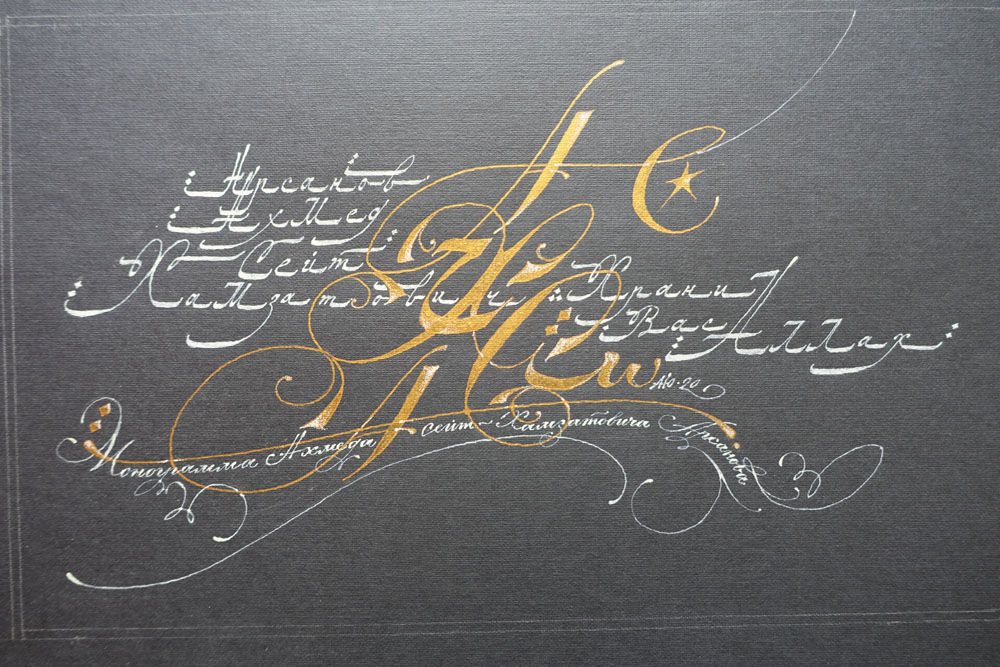 Арсанов
Ахмед
Сейт
Хамзатович Храни
Вас
Аллах
АЮ-20
Монограмма Ахмеда Сейт-Хамзатовича Арсанова